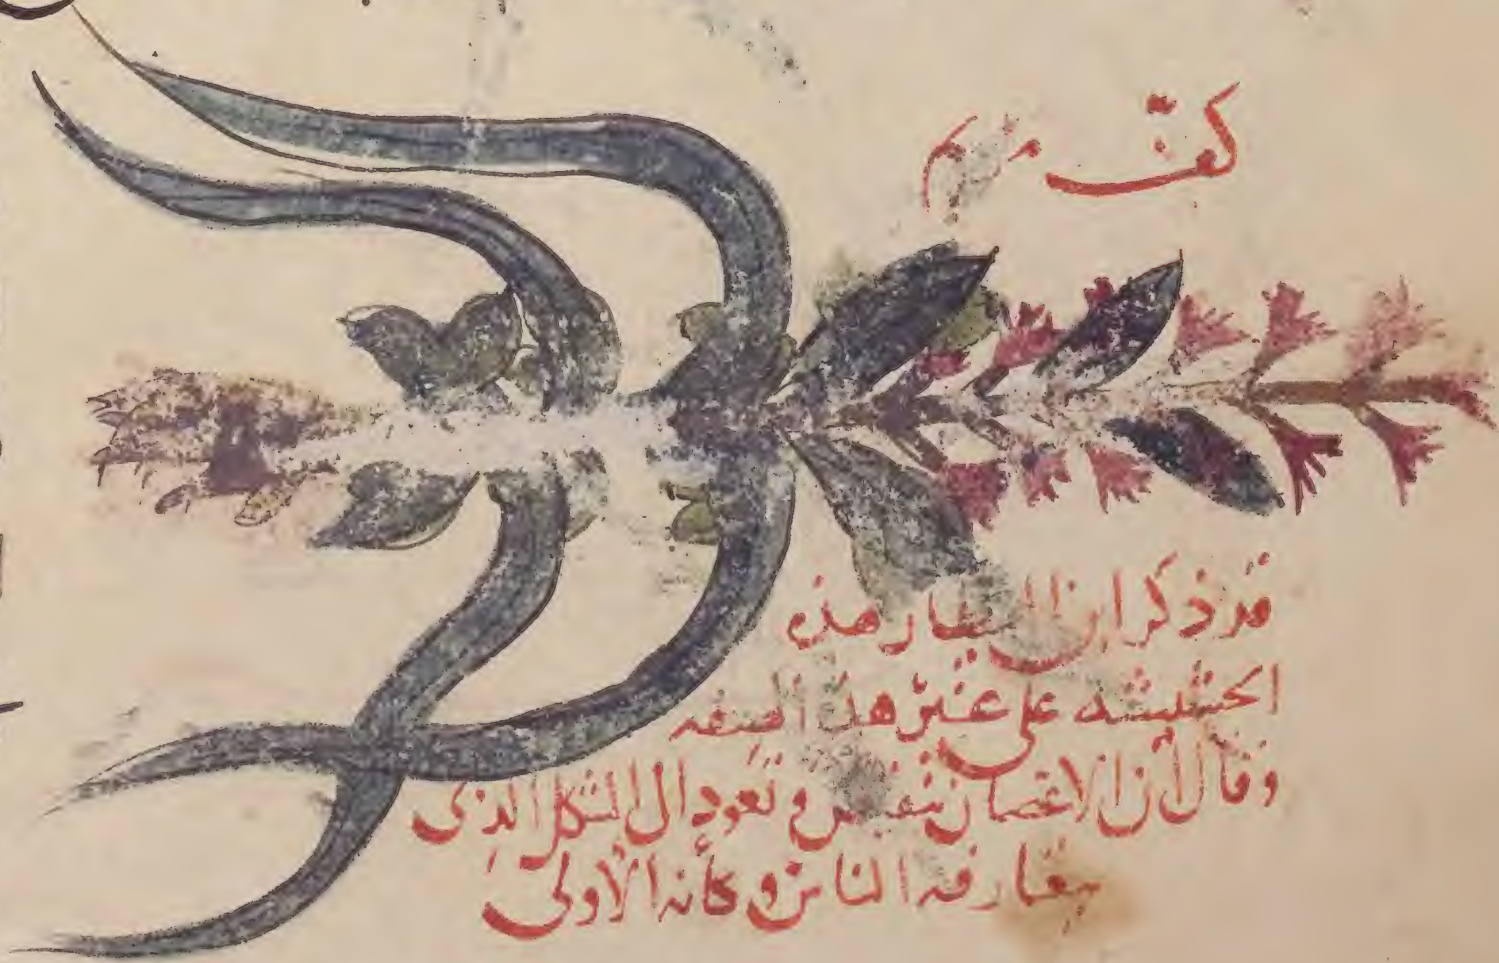 كفّ مريم
قد ذكر ابن البيطار هذه
الحشيشه على غير هذه الصفه
وقال ان الاغصان تنقبض وتعود الى الشكل الذى
يتعارفه الناس وكأنه الاولى